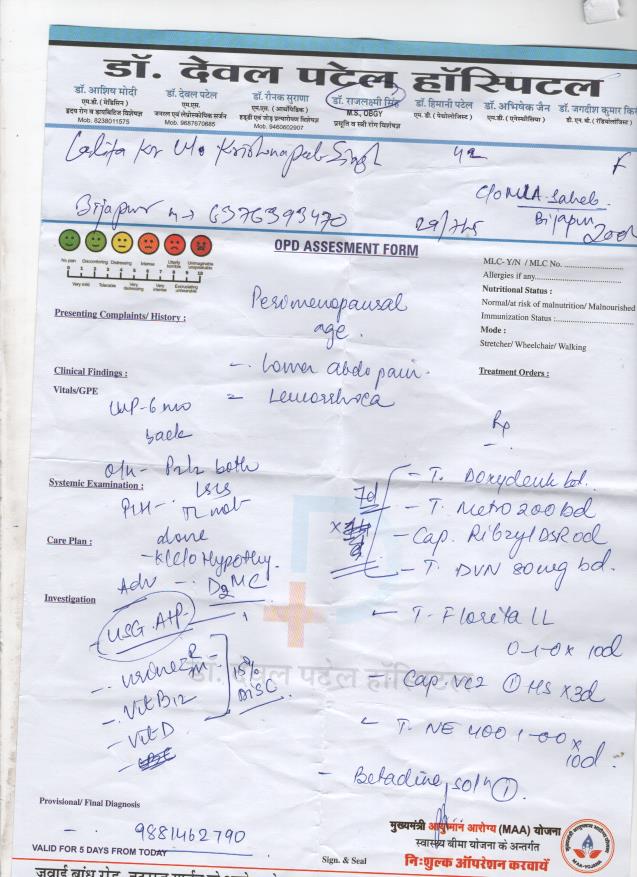 डॉ. देवल पटेल हॉस्पिटल
डॉ. आशिष मोदी
एम.डी. ( मेडिसिन )
हृदय रोग व डायबिटिज विशेषज्ञ
Mob. 8238011575
डॉ. देवल पटेल
एम.एस.
जनरल एवं लेप्रोस्कोपिक सर्जन
Mob. 9687670685
डॉ. रौनक सुराणा
एम.एस. (आर्थोपेडिक)
हड्डी एवं जोड़ प्रत्यारोपण विशेषज्ञ
Mob. 9460602907
डॉ. राजलक्ष्मी सिंह
M.S, OBGY
प्रसूति व स्त्री रोग विशेषज्ञ
डॉ. हिमानी पटेल
एम. डी. ( पेथोलोजिस्ट )
डॉ. अभिषेक जैन
एम.डी. ( एनेस्थीसिया )
डॉ. जगदीश कुमार
Lalita Kr W/o Krishnapal Singh 42 F
C/o MLA Saheb
Bijapur
Bijapur M → 6376393470 29/7/25 200/
No pain Discomforting Distressing Intense Utterly horrible Unimaginable unspeakable
0 1 2 3 4 5 6 7 8 9 10
Very mild Tolerable Very distressing Very intense Excruciating unbearable
OPD ASSESMENT FORM
MLC- Y/N / MLC No.
Allergies if any
Nutritional Status :
Normal/at risk of malnutrition/ Malnourished
Immunization Status :
Mode :
Stretcher/ Wheelchair/ Walking
Presenting Complaints/ History :
Perimenopausal
age.
Clinical Findings :
- Lower abdo pain.
Treatment Orders :
Vitals/GPE
= Leucorrhoea
LMP - 6 mo
back
Rx
O/H - P2L2 both
LSCS
Systemic Examination :
TL not
done
Care Plan :
- K/C/o Hypothy.
Adv - D2MC
Investigation
USG. A+P
- Urine R/M
- Vit B12
- Vit D
15% DISC
7d
- T. Doxy bd.
- T. Metro 200 bd
- Cap. DSR od
- T. DVN 80mg bd.
- T- Florita LL
0-1-0 x 10d
- Cap VC2 ① HS x 3d
- T. NE 400 1-0-0 x
10d.
- Betadine soln ①
डॉ. देवल पटेल हॉस्पिटल
Provisional/ Final Diagnosis
- 9881462790
VALID FOR 5 DAYS FROM TODAY
Sign. & Seal
मुख्यमंत्री आयुष्मान आरोग्य (MAA) योजना
स्वास्थ्य बीमा योजना के अन्तर्गत
निःशुल्क ऑपरेशन करवायें
MAA-YOJANA